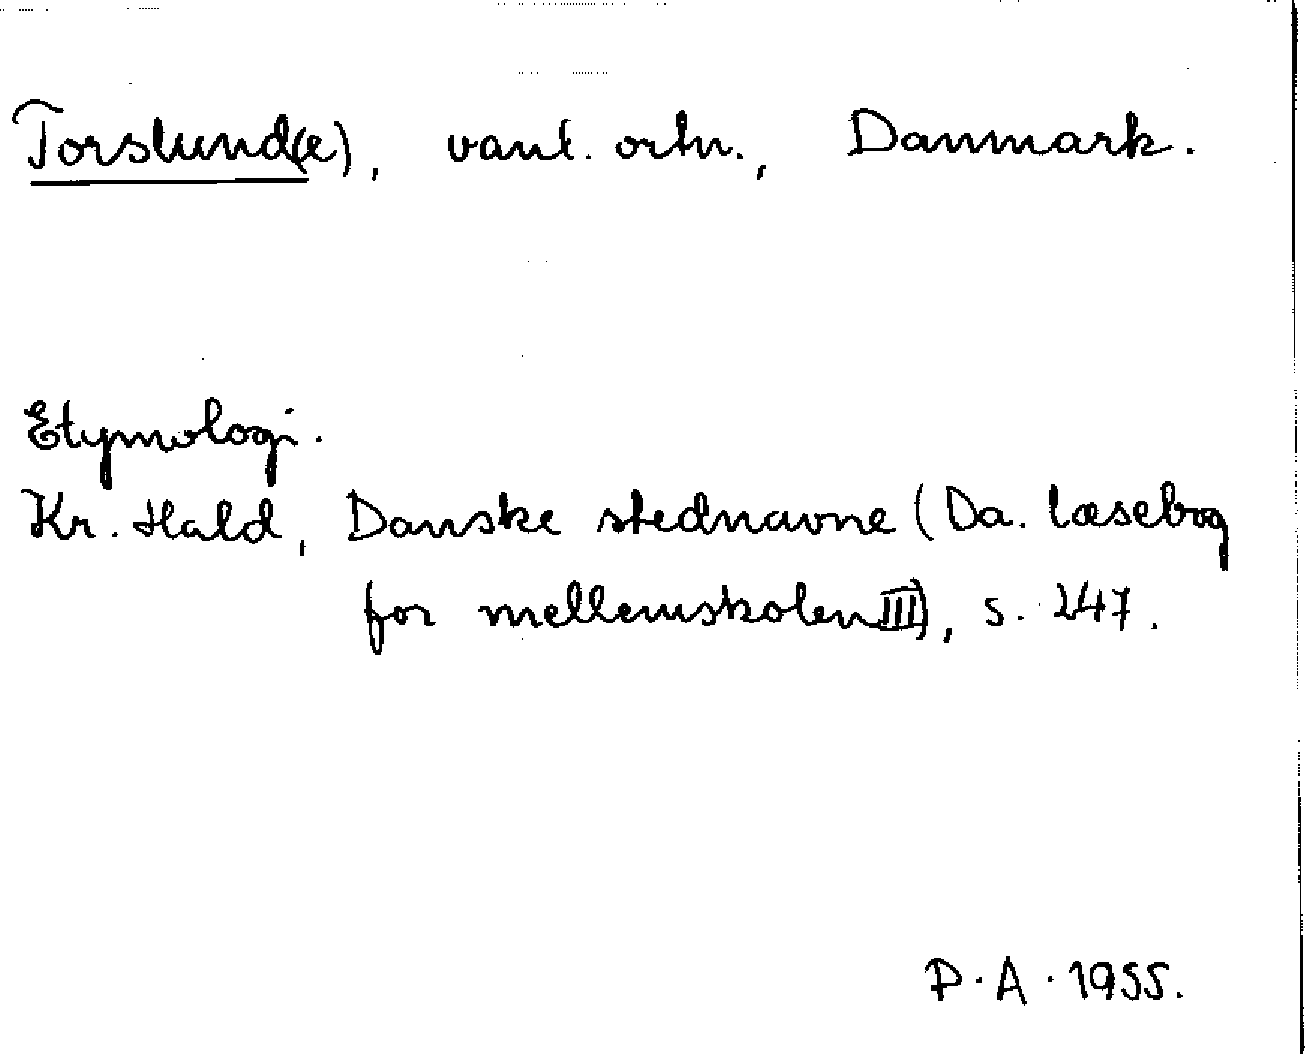 Torslund(e), vanl. ortn., Danmark.
Etymologi.
Kr. Hald, Danske stednavne (Da. læsebog
for mellemskolen III), s. 247.
P. A. 1955.